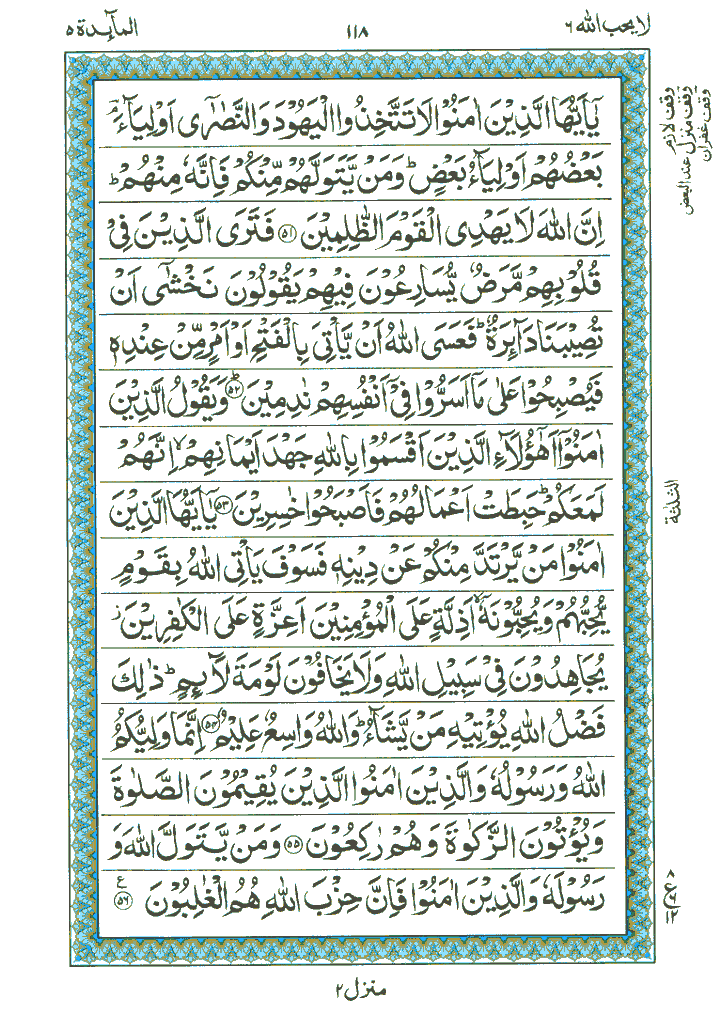 لا يحب الله ٦
١١٨
المآئدة ٥
يٰۤاَيُّهَا الَّذِيْنَ اٰمَنُوْا لَا تَتَّخِذُوا الْيَهُوْدَ وَالنَّصٰرٰۤى اَوْلِيَآءَ ۘؔ
بَعْضُهُمْ اَوْلِيَآءُ بَعْضٍ ؕ وَمَنْ يَّتَوَلَّهُمْ مِّنْكُمْ فَاِنَّهٗ مِنْهُمْ ؕ
اِنَّ اللّٰهَ لَا يَهْدِى الْقَوْمَ الظّٰلِمِيْنَ ﴿۵۱﴾ فَتَرَى الَّذِيْنَ فِىْ
قُلُوْبِهِمْ مَّرَضٌ يُّسَارِعُوْنَ فِيْهِمْ يَقُوْلُوْنَ نَخْشٰٓى اَنْ
تُصِيْبَنَا دَآئِرَةٌ ؕ فَعَسَى اللّٰهُ اَنْ يَّاْتِىَ بِالْفَتْحِ اَوْ اَمْرٍ مِّنْ عِنْدِهٖ
فَيُصْبِحُوْا عَلٰى مَاۤ اَسَرُّوْا فِىْۤ اَنْفُسِهِمْ نٰدِمِيْنَ ؕ﴿۵۲﴾ وَيَقُوْلُ الَّذِيْنَ
اٰمَنُوْۤا اَهٰٓؤُلَآءِ الَّذِيْنَ اَقْسَمُوْا بِاللّٰهِ جَهْدَ اَيْمَانِهِمْ ۙ اِنَّهُمْ
لَمَعَكُمْ ؕ حَبِطَتْ اَعْمَالُهُمْ فَاَصْبَحُوْا خٰسِرِيْنَ ﴿۵۳﴾ يٰۤاَيُّهَا الَّذِيْنَ
اٰمَنُوْا مَنْ يَّرْتَدَّ مِنْكُمْ عَنْ دِيْنِهٖ فَسَوْفَ يَاْتِى اللّٰهُ بِقَوْمٍ
يُّحِبُّهُمْ وَيُحِبُّوْنَهٗۤ ۙ اَذِلَّةٍ عَلَى الْمُؤْمِنِيْنَ اَعِزَّةٍ عَلَى الْكٰفِرِيْنَ ز
يُجَاهِدُوْنَ فِىْ سَبِيْلِ اللّٰهِ وَلَا يَخَافُوْنَ لَوْمَةَ لَآئِمٍ ؕ ذٰلِكَ
فَضْلُ اللّٰهِ يُؤْتِيْهِ مَنْ يَّشَآءُ ؕ وَاللّٰهُ وَاسِعٌ عَلِيْمٌ ﴿۵۴﴾ اِنَّمَا وَلِيُّكُمُ
اللّٰهُ وَرَسُوْلُهٗ وَالَّذِيْنَ اٰمَنُوا الَّذِيْنَ يُقِيْمُوْنَ الصَّلٰوةَ
وَيُؤْتُوْنَ الزَّكٰوةَ وَهُمْ رٰكِعُوْنَ ﴿۵۵﴾ وَمَنْ يَّتَوَلَّ اللّٰهَ وَ
رَسُوْلَهٗ وَالَّذِيْنَ اٰمَنُوْا فَاِنَّ حِزْبَ اللّٰهِ هُمُ الْغٰلِبُوْنَ ﴿۵۶﴾ ع
وقف لازم
وقف منزل عند البعض
وقف غفران
الثلثة
٨
ع
٦
١٢
منزل ٢